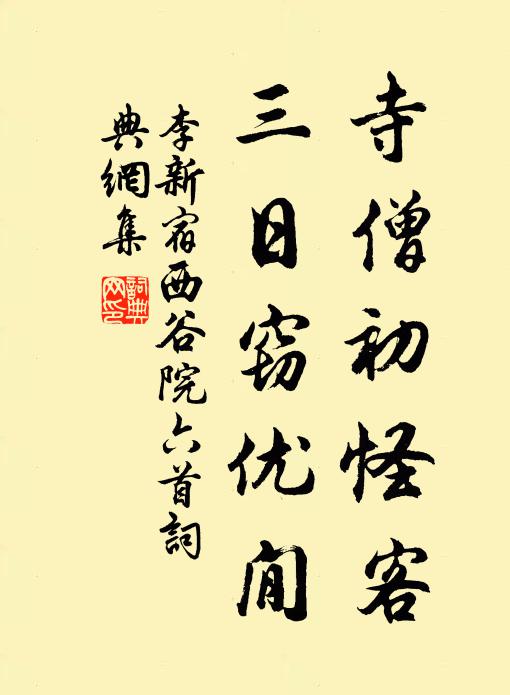 寺僧初怪客
三日窃优闲
李新宿西谷院六首詞
典網集
詞典网印